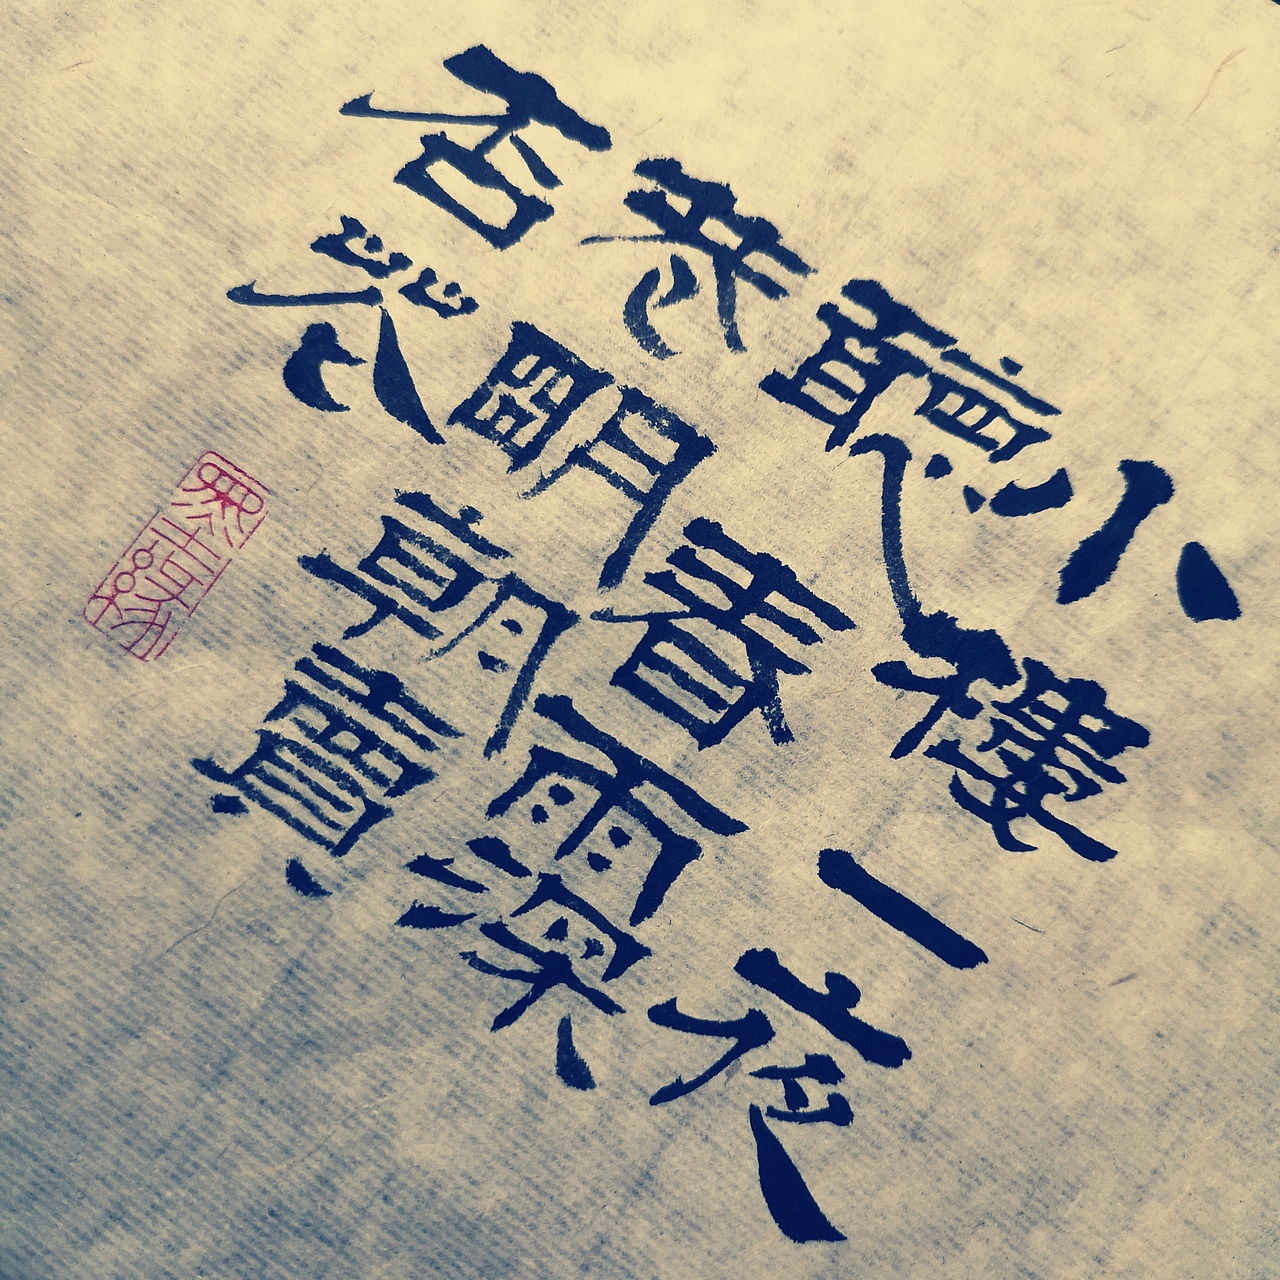 小樓一夜
聽春雨深
巷明朝賣
杏花